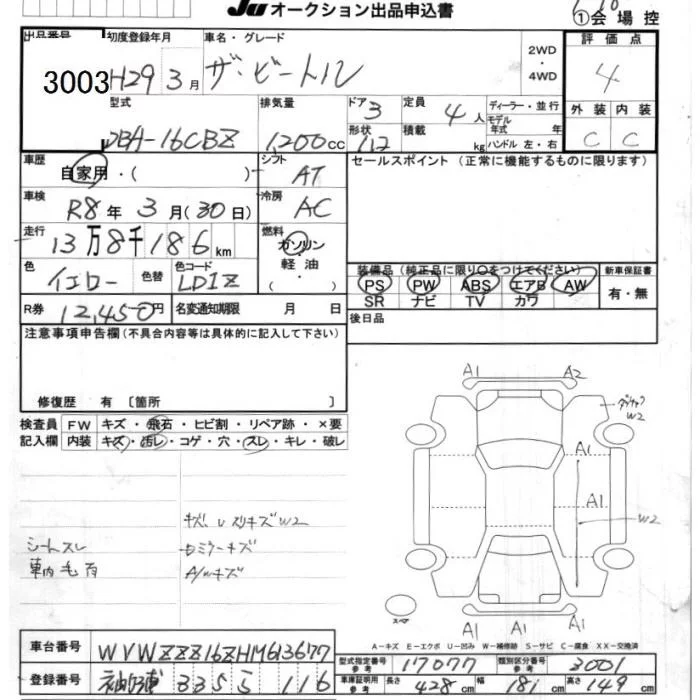 JU オークション出品申込書
①会場控
出品番号 初度登録年月 車名・グレード 2WD・4WD 評価点
3003 H29 3月 ザ・ビートル 4
型式 排気量 ドア 3 定員 4人 ディーラー・並行 外装 内装
DBA-16CBZ 1200cc 形状 112 積載 kg モデル年式 年式 ハンドル 左・右 C C
車歴 自家用・( ) シフト AT セールスポイント (正常に機能するものに限ります)
車検 R8年 3月(30日) 冷房 AC
走行 13万8千186km 燃料 ガソリン
軽油・( )
色 イエロー 色替 色コード LD1Z
装備品 (純正品に限り○をつけてください) 新車保証書
PS PW ABS エアB AW 有・無
SR ナビ TV カワ
R券 12,450円 名変通知期限 月 日 後日品
注意事項申告欄 (不具合内容等は具体的に記入して下さい)
修復歴 有 〔箇所 〕
検査員 FW キズ・飛石・ヒビ割・リペア跡・×要
記入欄 内装 キズ・汚レ・コゲ・穴・スレ・キレ・破レ
A1 A2
W2
A1
A1
W2
キズ、スリキズW2
シートスレ ミラーキズ
車内毛有 A/Wキズ
A1
A1 A1
スペア
A-キズ E-エクボ U-凹み W-補修跡 S-サビ C-腐食 XX-交換済
車台番号 WVWZZZ16ZHM613677
型式指定番号 参考 17077 類別区分番号 参考 3001
登録番号 袖ヶ浦 335 う 116
車庫証明用 参考 長さ 428cm 幅 181cm 高さ 149cm